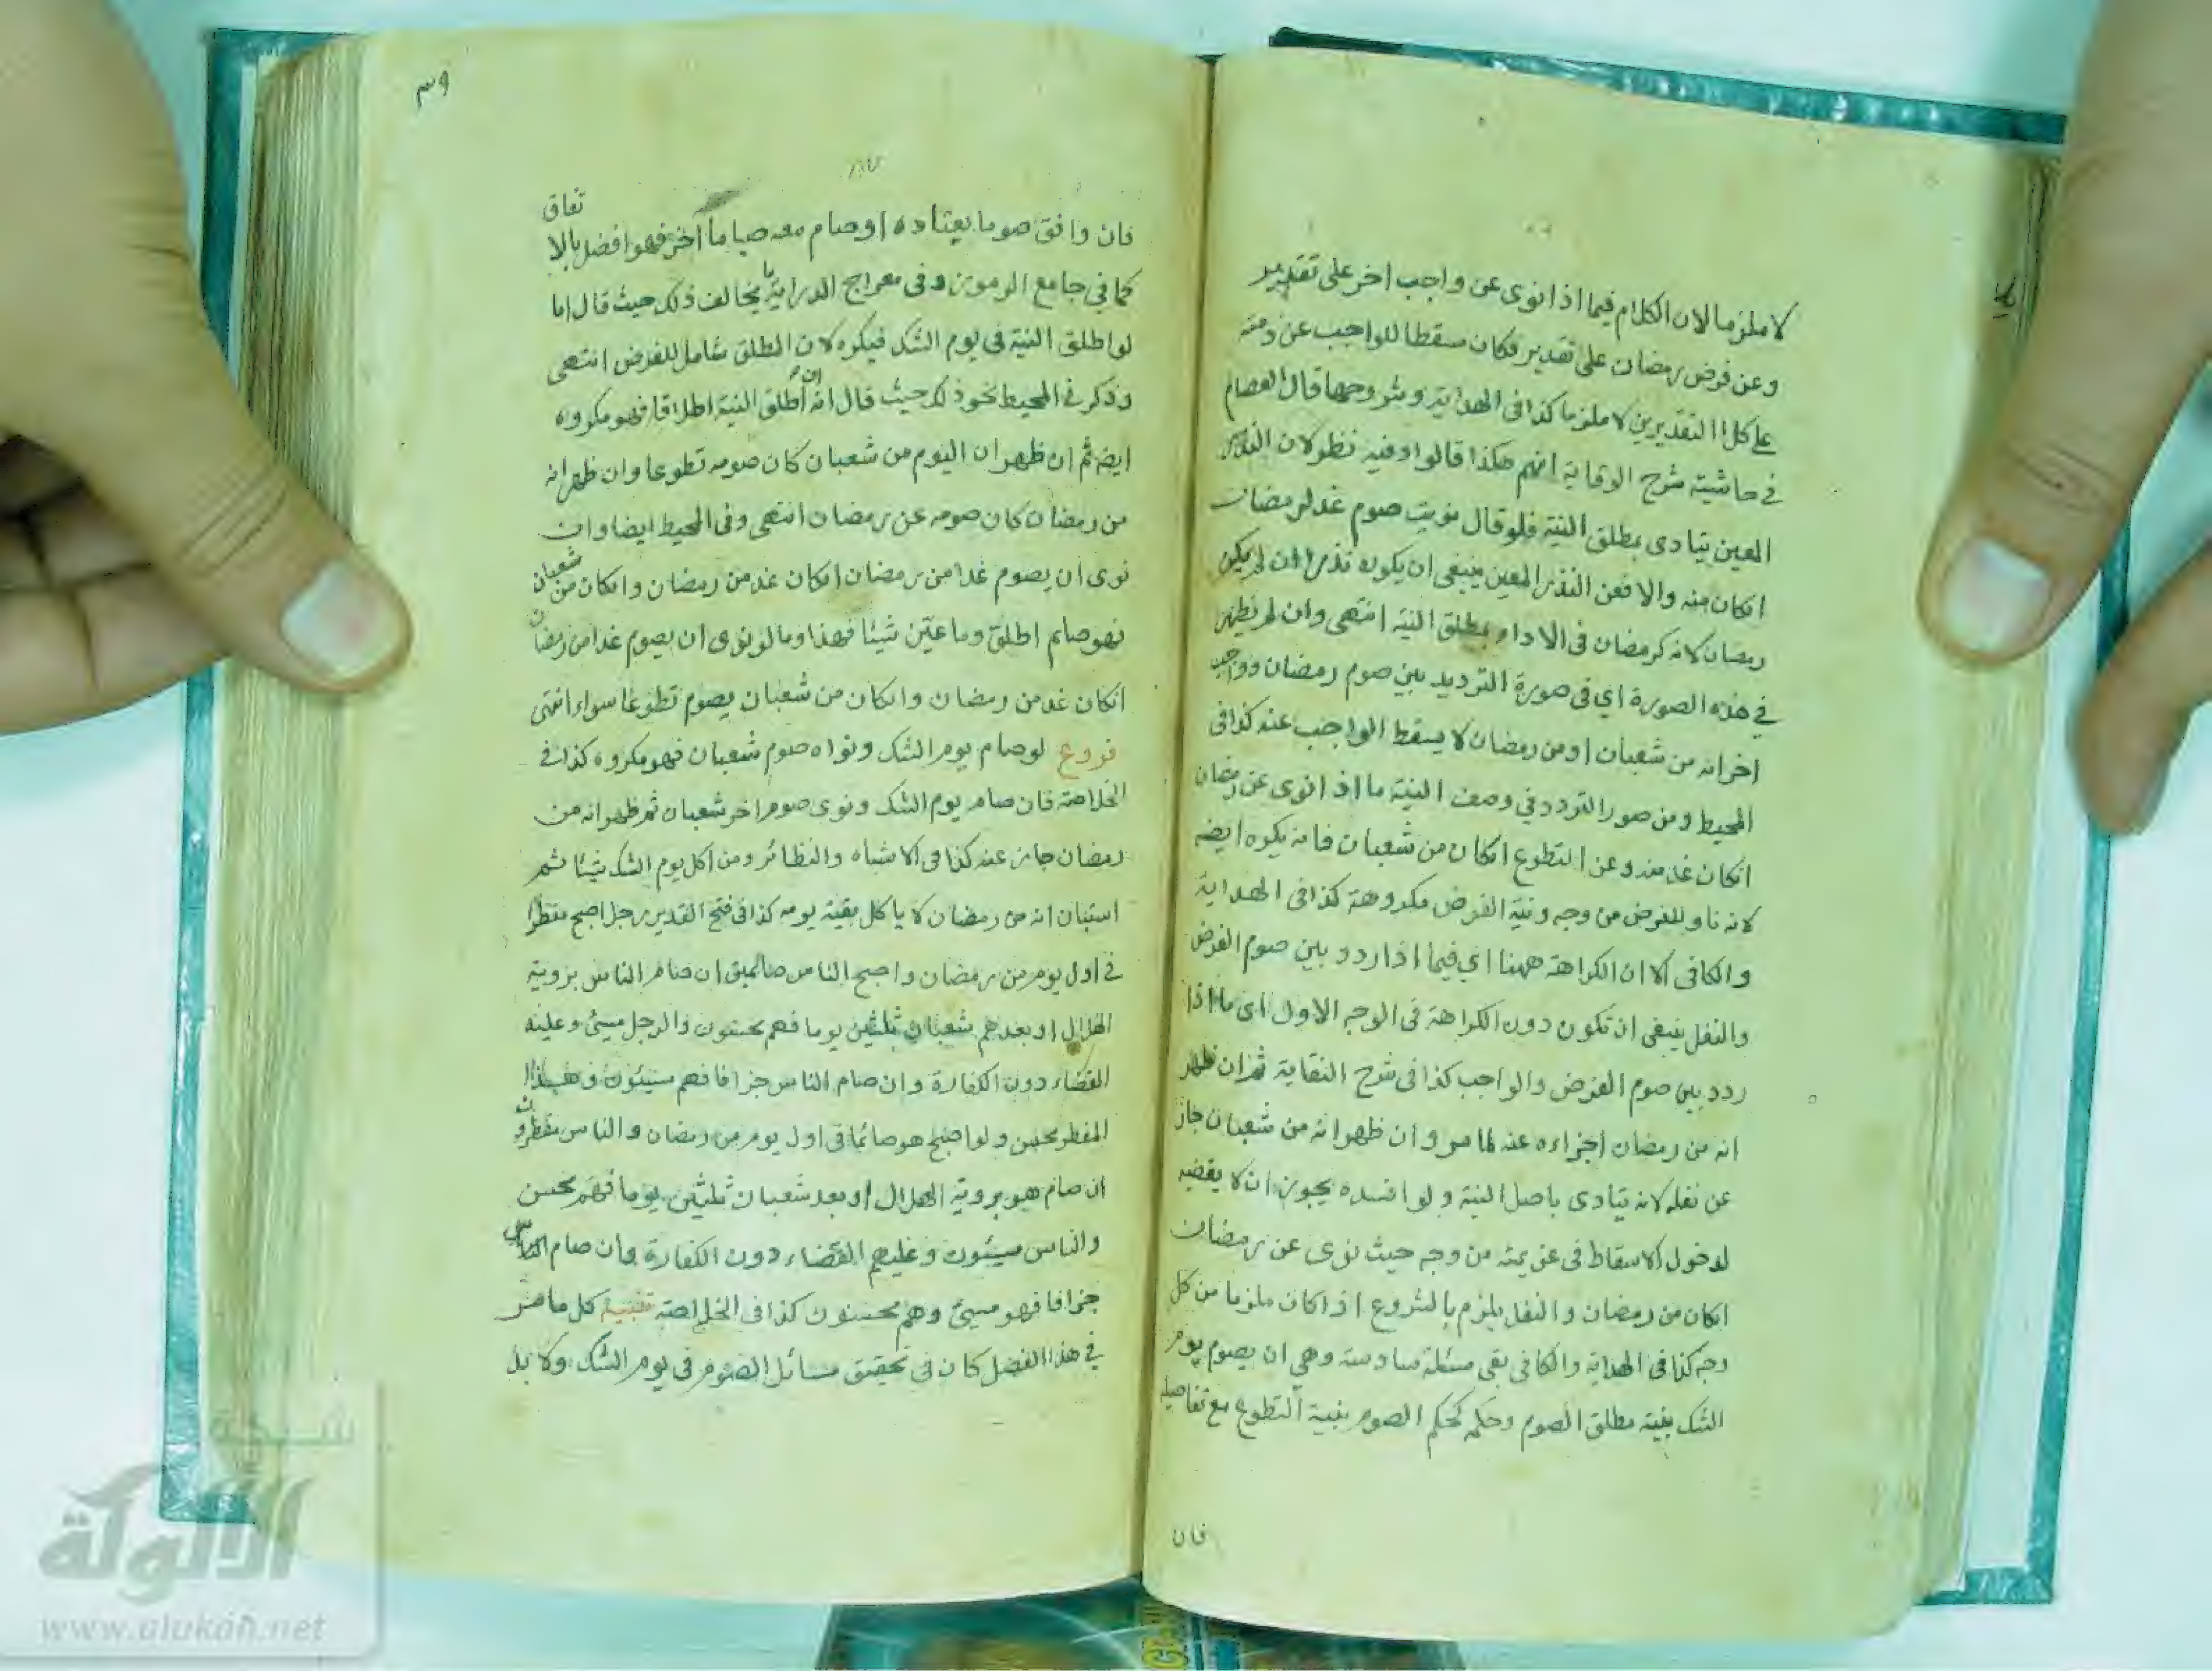 لا ملزما لان الكلام فيما اذا نوى عن واجب اخر على تقدير
وعن فرض رمضان على تقدير فكان مسقطا للواجب عن ذمته
على كلا التقديرين لا ملزما كذا فى الهداية وشروحها قال العصام
فى حاشيته شرح الوقاية انهم هكذا قالوا وفيه نظر لان النذر
المعين يتادى بمطلق النية فلو قال نويت صوم غد لرمضان
انكان منه والا فعن النذر المعين ينبغى ان يكون نذرا ان لم يكن
رمضان لانه كرمضان فى الاداء بمطلق النية انتهى وان لم يظهر
فى هذه الصورة اي فى صورة الترديد بين صوم رمضان وواجب
اخر انه من شعبان او من رمضان لا يسقط الواجب عنه كذا فى
المحيط ومن صور التردد في وصف النية ما اذا نوى عن رمضان
انكان غد منه وعن التطوع انكان من شعبان فانه يكره ايضه
لانه ناو للفرض من وجه ونية الفرض مكروهة كذا فى الهداية
والكافى الا ان الكراهة ههنا اي فيما اذا ردد بين صوم الفرض
والنفل ينبغى ان تكون دون الكراهة فى الوجه الاول اى ما اذا
ردد بين صوم الفرض والواجب كذا فى شرح النقاية ثم ان ظهر
انه من رمضان اجزاءه عنه لما مر وان ظهر انه من شعبان جاز
عن نفله لانه يتادى باصل النية ولو افسده يجوز ان لا يقضيه
لدخول الاسقاط فى عزيمته من وجه حيث نوى عن رمضان
انكان من رمضان والنفل يلزم بالشروع اذا كان ملزما من كل
وجه كذا فى الهداية والكافى بقى مسئلة سادسة وهي ان يصوم يوم
الشك بنية مطلق الصوم وحكمه كحكم الصوم بنية التطوع مع تفاصيله
فان
٣٩
فان وافق صوما يعتاده او صام معه صياما آخر فهو افضل بالا
تفاق
كما في جامع الرموز وفى معراج الدراية ما يخالف ذلك حيث قال اما
لو اطلق النية فى يوم الشك فيكره لان المطلق شامل للفرض انتهى
وذكر فى المحيط نحو ذلك حيث قال انه ان اطلق النية اطلاقا فهو مكروه
ايضه ثم ان ظهر ان اليوم من شعبان كان صومه تطوعا وان ظهر انه
من رمضان كان صومه عن رمضان انتهى وفى المحيط ايضا وان
نوى ان يصوم غدا من رمضان انكان غد من رمضان وانكان من شعبان
فهو صايم اطلق وما عيّن شيئا فهذا وما لو نوى ان يصوم غدا من رمضان
انكان غد من رمضان وانكان من شعبان يصوم تطوعا سواء انتهى
فروع لو صام يوم الشك ونواه صوم شعبان فهو مكروه كذا فى
الخلاصة فان صام يوم الشك ونوى صوم اخر شعبان ثم ظهر انه من
رمضان جاز عنه كذا فى الاشباه والنظائر ومن اكل يوم الشك شيئا ثم
استبان انه من رمضان لا ياكل بقية يومه كذا فى فتح القدير رجل اصبح مفطرا
فى اول يوم من رمضان واصبح الناس صائمين ان صام الناس بروية
الهلال او بعدهم شعبان ثلثين يوما فهم محسنون والرجل مسئ وعليه
القضاء دون الكفارة وان صام الناس جزافا فهم مسيئون وهذا
المفطر محسن ولو اصبح هو صائما فى اول يوم من رمضان والناس مفطرون
ان صام هو بروية الهلال او بعد شعبان ثلثين يوما فهم محسن
والناس مسيئون وعليهم القضاء دون الكفارة وان صام الناس
جزافا فهو مسيئ وهم محسنون كذا فى الخلاصة تنبيه كل ما مر
في هذا الفصل كان فى تحقيق مسائل الصوم فى يوم الشك ولا بد
شبكة
الألوكة
www.alukah.net